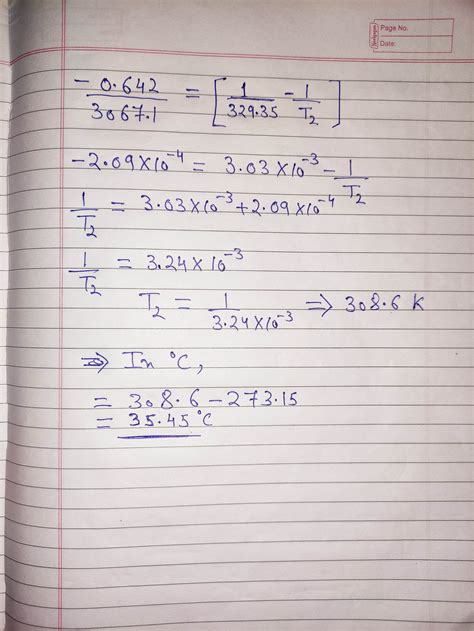 Page No.
Date:
-0.642/3067.1 = [1/329.35 - 1/T₂]
-2.09×10⁻⁴ = 3.03×10⁻³ - 1/T₂
1/T₂ = 3.03×10⁻³ + 2.09×10⁻⁴
1/T₂ = 3.24×10⁻³
T₂ = 1/3.24×10⁻³ ⇒ 308.6 K
⇒ In °C,
= 308.6 - 273.15
= 35.45°C